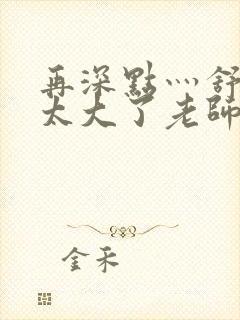 再深點灬舒
太大了老師
金禾